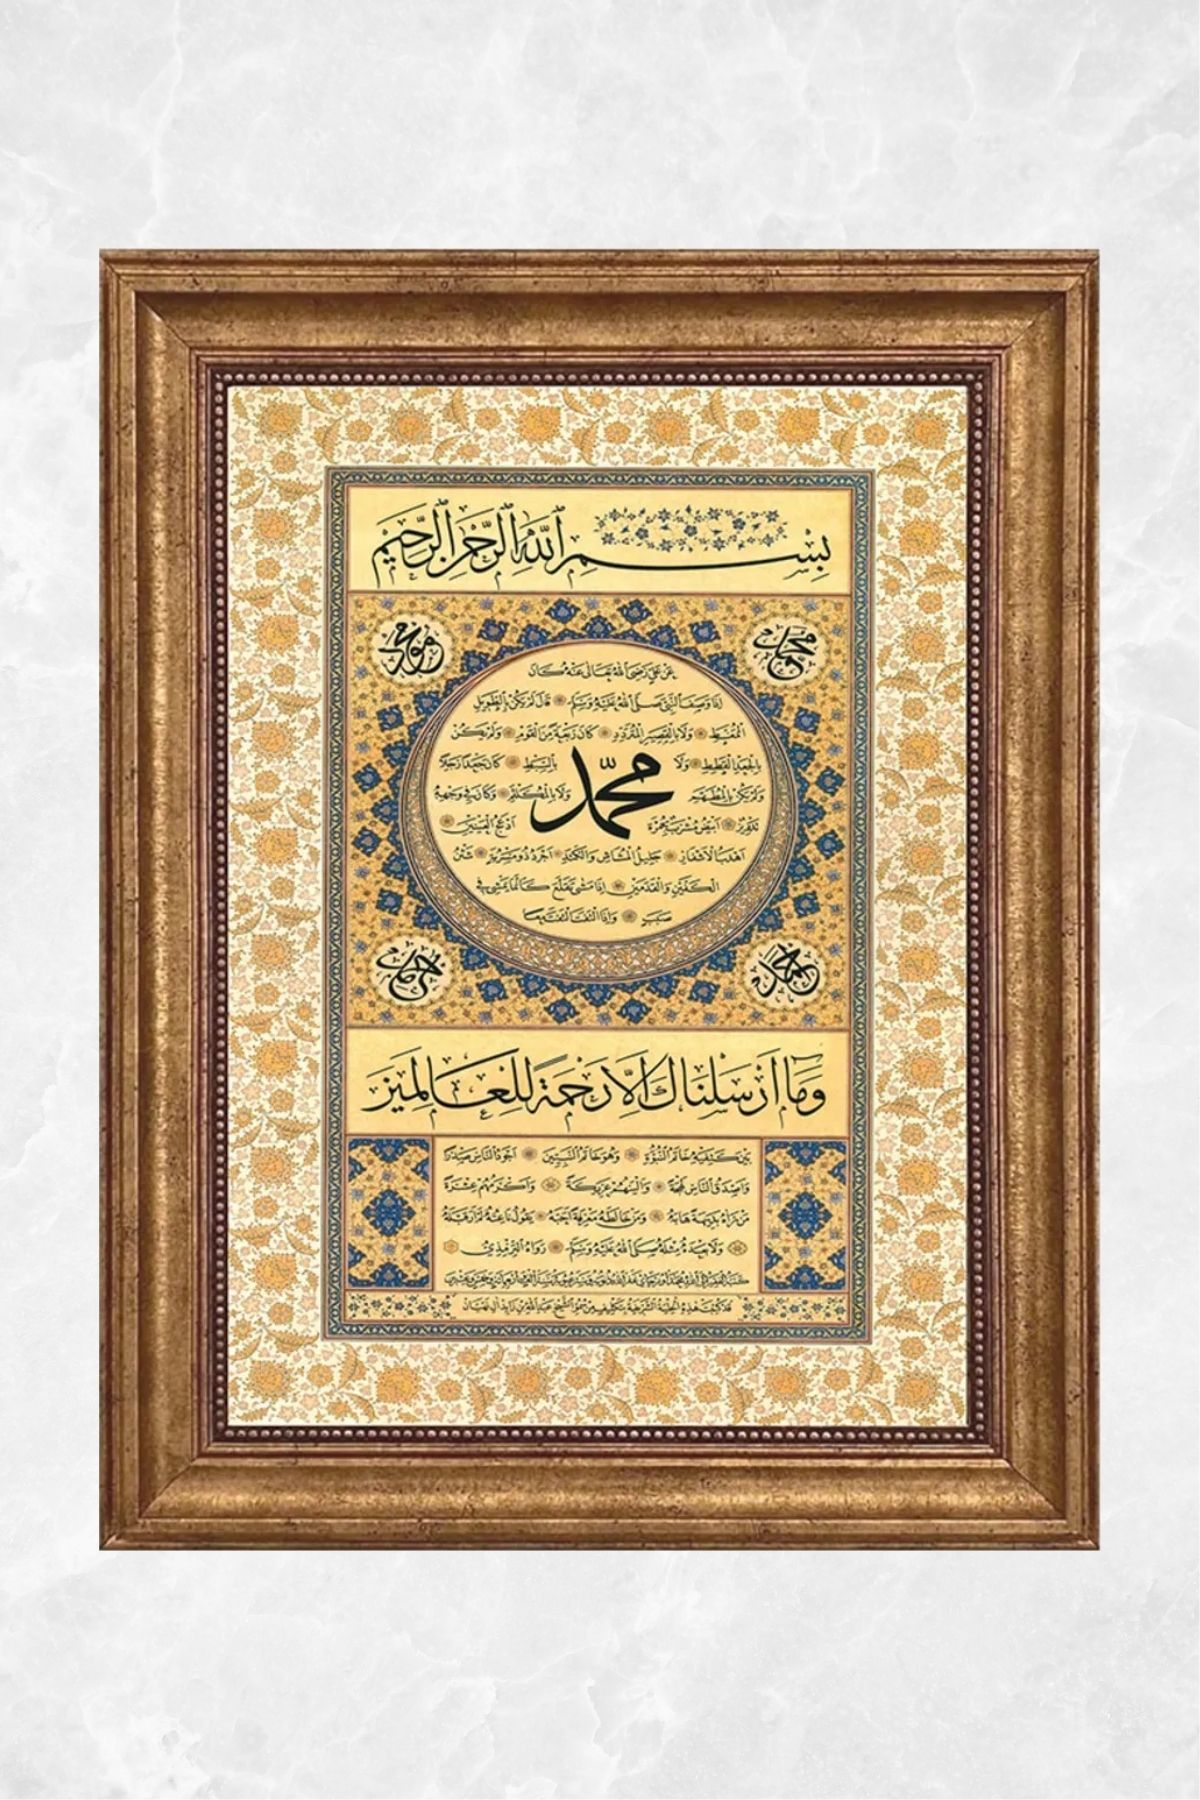 بسم الله الرحمن الرحيم
عن علي رضى الله تعالى عنه كان
اذا وصف النبى صلى الله عليه وسلم قال لم يكن بالطويل
الممغط ولا بالقصير المتردد كان ربعة من القوم ولم يكن
بالجعد القطط ولا بالسبط كان جعدا رجلا
محمد
ولم يكن بالمطهم ولا بالمكلثم وكان فى وجهه
تدوير ابيض مشرب بحمرة ادعج العينين
اهدب الاشفار جليل المشاش والكتد اجرد ذو مسربة شثن
الكفين والقدمين اذا مشى تقلع كانما يمشى فى
صبب واذا التفت التفت معا
وما ارسلناك الا رحمة للعالمين
بين كتفيه خاتم النبوة وهو خاتم النبيين اجود الناس صدرا
واصدق الناس لهجة والينهم عريكة واكرمهم عشرة
من رآه بديهة هابه ومن خالطه معرفة احبه يقول ناعته لم ار قبله
ولا بعده مثله صلى الله عليه وسلم رواه الترمذى
قد كتبت هذه الحلية الشريفة بتكليف من سمو الشيخ عبد الله بن زايد آل نهيان